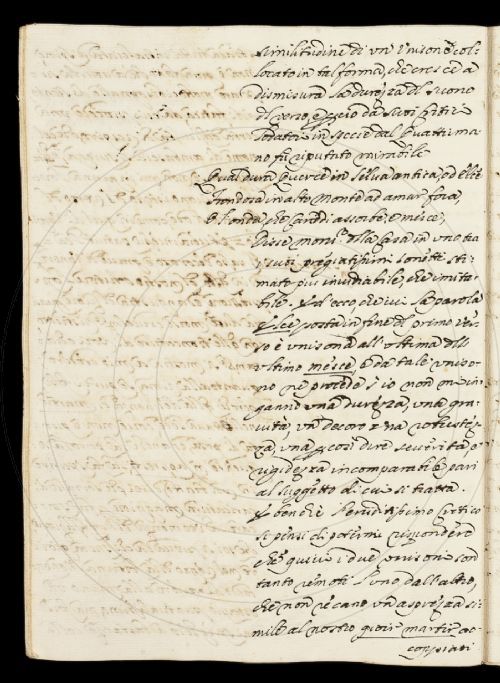 similitudine di un' Unisone col-
locato in tal forma, che cresce à
dismisura la durezza del suono
del verso, e perciò da suoi Critici
Lodatori in specie dal Quattroma-
no fù riputato mirabile
Qual dura Quercie in selva antica, od elce
Frondosa in alto monte ad amar fora,
O l'onda, che Cariddi assorbe, e mesce,
Disse monsr. della Casa in uno tra
i suoi pregiatissimi sonetti sti-
mato più invidiabile, che imita-
bile. Ed ecco, che ivi la parola
Elce posta in fine del primo ver-
so è unisona all'ultima dello
ultimo mesce, e da tale uniso-
no ne procede s'io non m'in-
ganno una durezza, una gra-
vità, un decoro una robustez-
za, una per così dire severità e
rigidezza incomparabile pari
al suggetto di cui si tratta.
E benche l'eruditissimo critico
si pensi di potermi rispondere
che quivi i due unisoni son
tanto remoti l'uno dall'altro,
che non recano un'asprezza si-
mile al nostro gioir martir ac-
coppiati